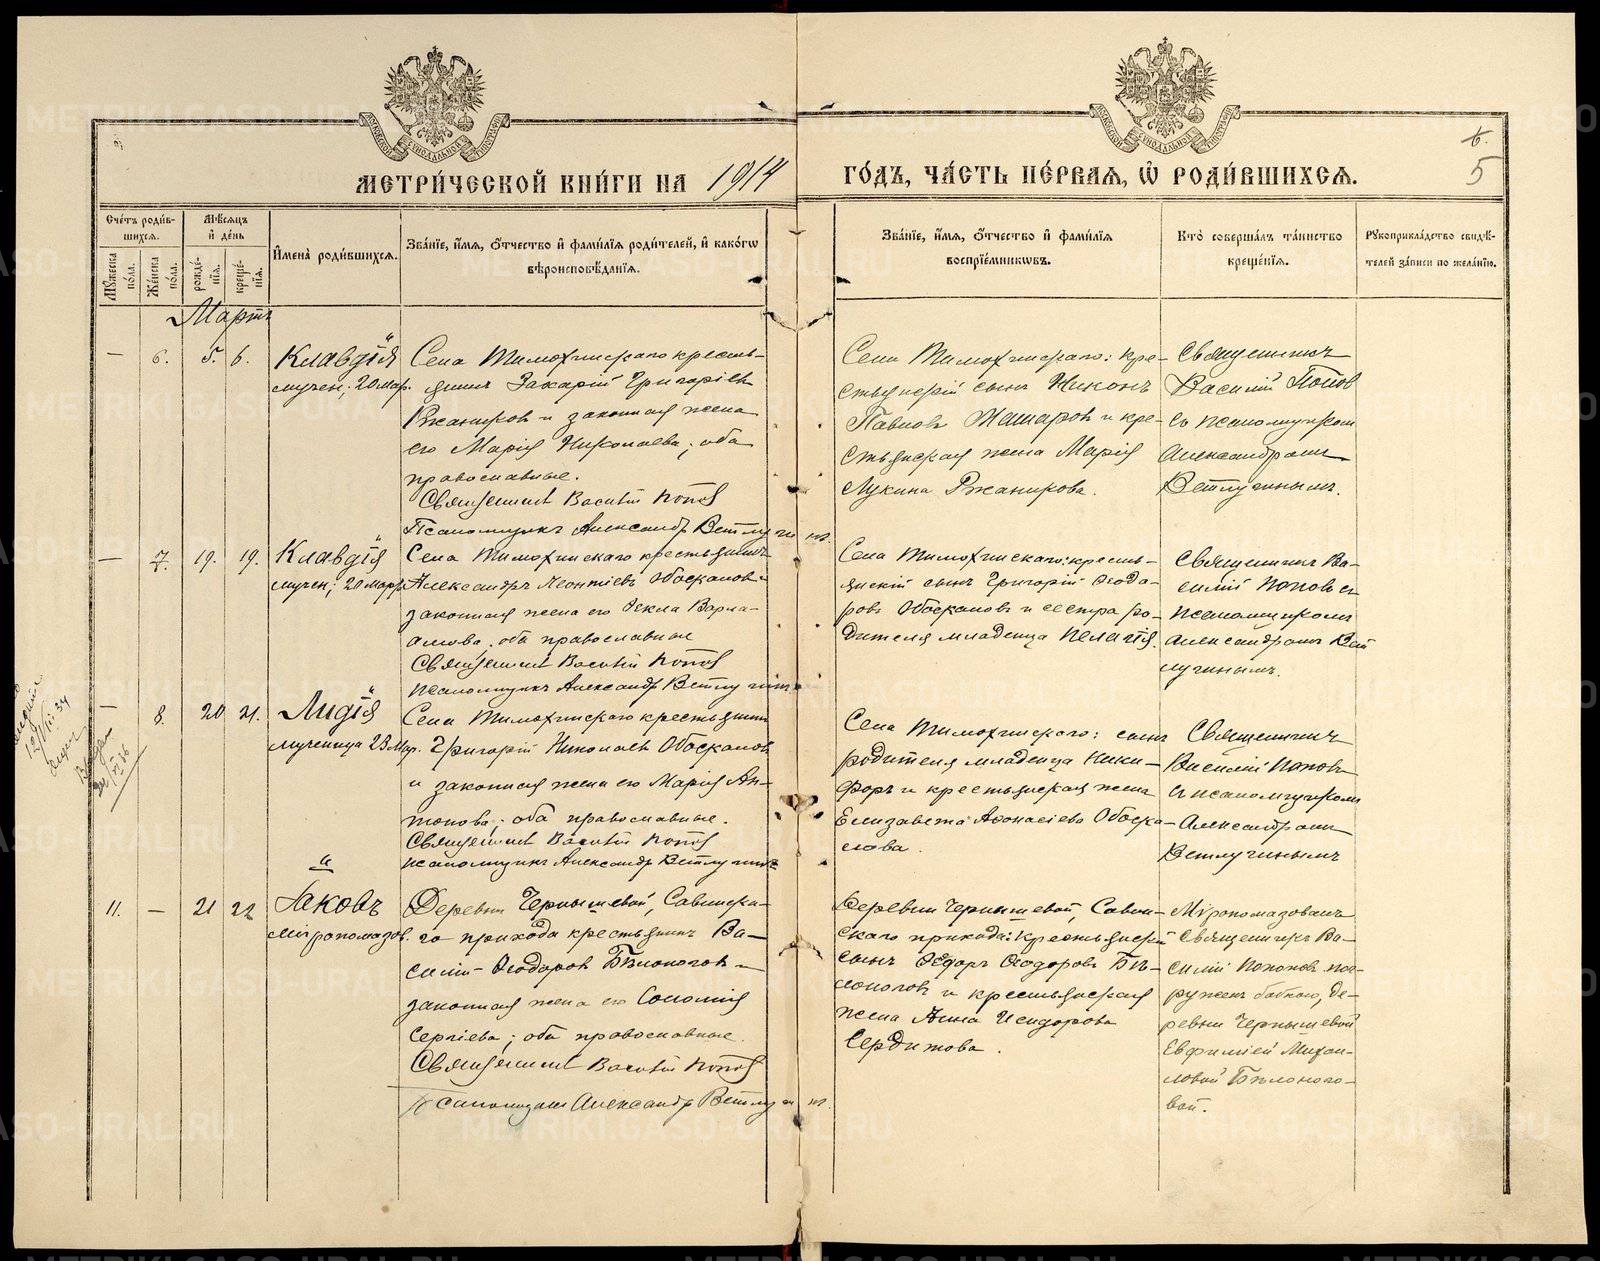 МЕТРИ́ЧЕСКОЙ КНИ́ГИ НА 1914 ГО́ДЪ, ЧА́СТЬ ПЕ́РВАЯ, Ѡ҆ РОДИ́ВШИХСЯ.
5
Сче́тъ роди́в-
шихся.
Мꙋ́жеска по́ла.
Же́нска по́ла.
Мѣ́сяцъ
и҆ де́нь
рожде́-
нїя.
креще́-
нїя.
И҆мена̀ роди́вшихся.
Зва́нїе, и҆́мя, о҆́тчество и҆ фами́лїя роди́телей, и҆ како́гѡ
вѣроисповѣ́данїя.
Зва́нїе, и҆́мя, о҆́тчество и҆ фами́лїя
воспрїе́мникѡвъ.
Кто̀ соверша́лъ та́инство
креще́нїя.
Рꙋкоприкла́дство свидѣ́-
телей за́писи по жела́нїю.
Мартъ
— 6. 5. 6.
Клавдія
мучен; 20 мар.
Села Тимохинскаго кресть-
янинъ Захарій Григоріевъ
Ржанников и законная жена
его Марія Николаева; оба
православные.
Священникъ Василій Попов
Псаломщикъ Александръ Ветлугинъ.
Села Тимохинскаго: кре-
стьянскій сынъ Никонъ
Павловъ Машаровъ и кре-
стьянская жена Марія
Лукина Ржанникова.
Священникъ
Василій Попов
съ псаломщиком
Александромъ
Ветлугинымъ.
— 7. 19. 19.
Клавдія
мучен; 20 марта
Села Тимохинскаго крестьянинъ
Александръ Леонтіевъ Обоскалов и
законная жена его Ѳекла Варла-
амова, оба православные
Священникъ Василій Попов
псаломщикъ Александръ Ветлугинъ
Села Тимохинскаго: кресть-
янскій сынъ Григорій Ѳеодо-
ровъ Обоскаловъ и сестра ро-
дителя младенца Пелагія.
Священникъ Ва-
силій Поповъ съ
псаломщикомъ
Александромъ Вет
лугинымъ.
— 8. 20 21.
Лидія
мученица 23 Мар.
Села Тимохинскаго крестьянинъ
Григорій Николаевъ Обоскаловъ
и законная жена его Марія Ан-
тонова; оба православные.
Священникъ Василій Попов
псаломщикъ Александръ Ветлугинъ
Села Тимохинскаго: сынъ
родителя младенца Ники-
форъ и крестьянская жена
Елизавета Аѳонасіева Обоска-
лова.
Священникъ
Василій Поповъ
съ псаломщикомъ
Александромъ
Ветлугинымъ
11. — 21 22
Іаковъ
мѵропомазов.
Деревни Чернышевой, Савинска-
го прихода крестьянинъ Ва-
силій Ѳеодоровъ Бѣлоноговъ и
законная жена его Соломія
Сергіева; оба православные.
Священникъ Василій Попов
Псаломщикъ Александръ Ветлугинъ.
Деревни Чернышевой, Савин-
скаго прихода: крестьянскій
сынъ Ѳедоръ Ѳеодоровъ Бѣ-
лоноговъ и крестьянская
жена Анна Исидорова
Сердитова.
Мѵропомазовалъ
Священникъ Ва-
силій Поповъ пог-
руженъ бабкою, де-
ревни Чернышевой
Евфиміей Михаи-
ловой Бѣлоного-
вой.
METRIKI.GASO-URAL.RU